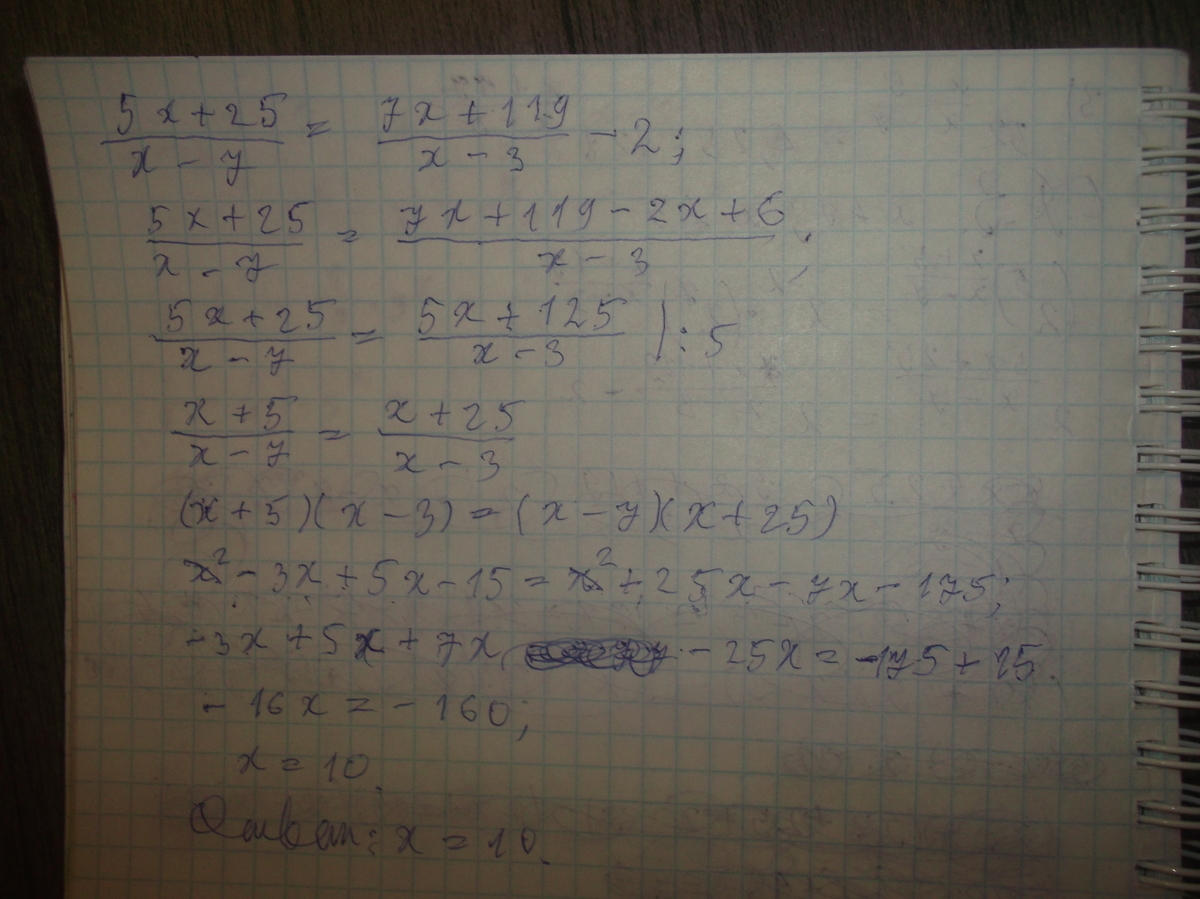 (5x+25)/(x-7) = (7x+119)/(x-3) - 2;
(5x+25)/(x-7) = (7x+119-2x+6)/(x-3).
(5x+25)/(x-7) = (5x+125)/(x-3) | : 5
(x+5)/(x-7) = (x+25)/(x-3)
(x+5)(x-3) = (x-7)(x+25)
x²-3x+5x-15 = x²+25x-7x-175;
-3x+5x+7x -25x = -175+15.
-16x = -160;
x = 10.
Ответ: x = 10.